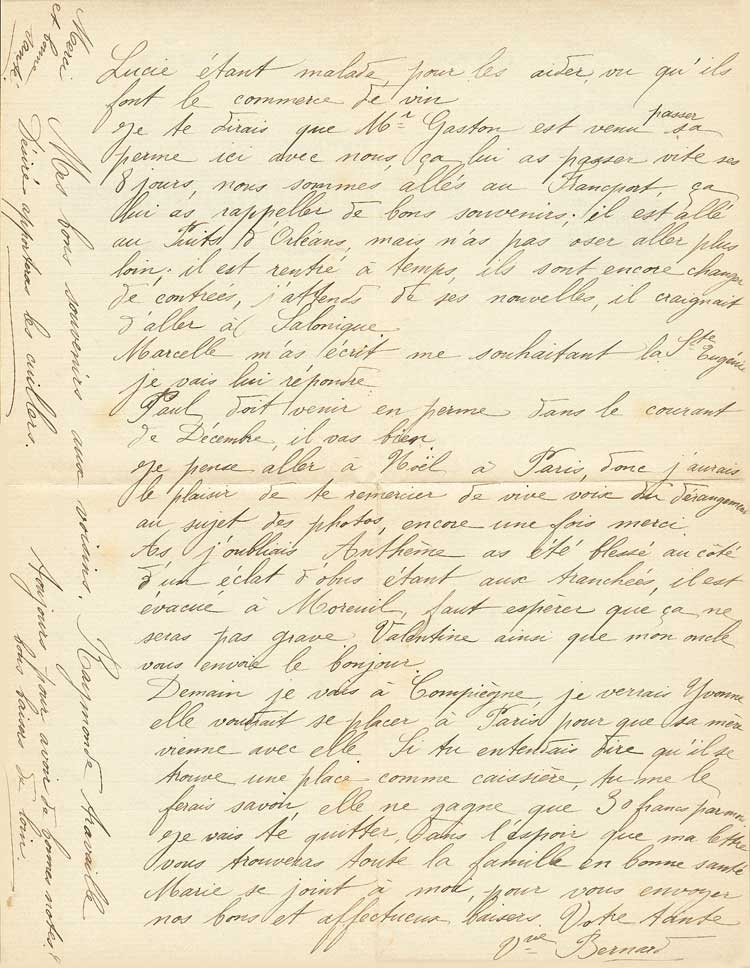 Lucie étant malade, pour les aider, vu qu'ils
font le commerce de vin
Je te dirais que Mr Gaston est venu passer sa
perme ici avec nous, ça lui as passer vite ses
8 jours, nous sommes allés au Francport, ça
lui as rappeller de bons souvenirs; il est allé
au Puits d'Orléans, mais n'as pas oser aller plus
loin; il est rentré à temps, ils sont encore changer
de contrées, j'attends de ses nouvelles, il craignait
d'aller à Salonique.
Marcelle m'as écrit me souhaitant la Ste Eugénie
je vais lui répondre
Paul doit venir en perme dans le courant
de Décembre, il vas bien
Je pense aller à Noël à Paris, donc j'aurais
le plaisir de te remercier de vive voix du dérangement
au sujet des photos, encore une fois merci.
As j'oubliais Anthême as été blessé au côté
d'un éclat d'obus étant aux tranchées, il est
évacué à Moreuil, faut espérer que ça ne
seras pas grave Valentine ainsi que mon oncle
vous envoie le bonjour.
Demain je vais à Compiègne, je verrais Yvonne
elle voudrait se placer à Paris pour que sa mère
vienne avec elle Si tu entendais dire qu'il se
trouve une place comme caissière, tu me le
ferais savoir, elle ne gagne que 30 francs par mois
Je vais te quitter, dans l'espoir que ma lettre
vous trouverrs toute la famille en bonne santé
Marie se joint à moi, pour vous envoyer
nos bons et affectueux baisers. Votre tante
Vve Bernard
Mes bons souvenirs aux voisins. Raymonde travaille
toujours pour avoir de bonnes notes?
bons baisers de loin.
Merci
et bonne
santé.
Désiré apporteras les cuillers.